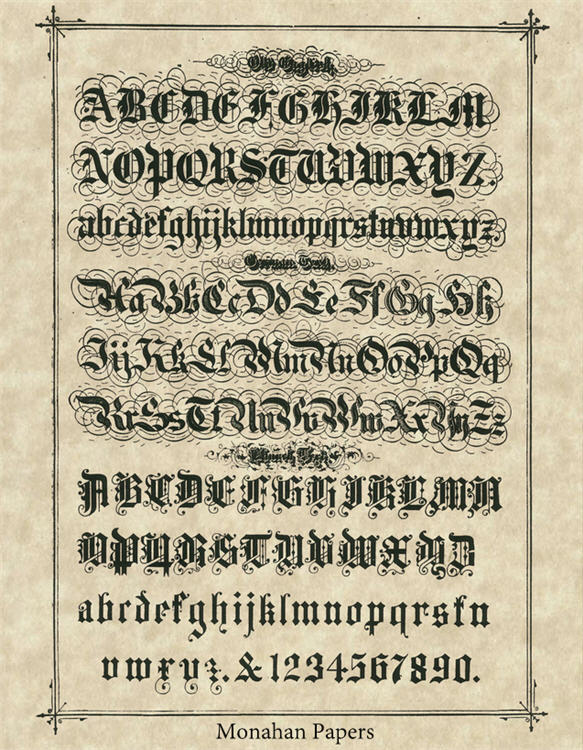 Old English.
ABCDEFGHIJKLM
NOPQRSTUVWXYZ.
abcdefghijklmnopqrstuvwxyz.
German Text.
AaBbCcDdEeFfGgHh
IijKkLlMmNnOoPpQq
RrSsTtUuVvWwXxYyZz
Church Text.
ABCDEFGHIJKLMN
OPQRSTUVWXYZ
abcdefghijklmnopqrstu
vwxyz.&1234567890.
Monahan Papers